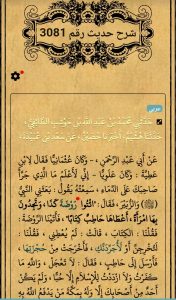 شرح حديث رقم 3081
عربي
حَدَّثَنِي مُحَمَّدُ بْنُ عَبْدِ اللَّهِ بْنِ حَوْشَبٍ الطَّائِفِيُّ،
حَدَّثَنَا هُشَيْمٌ، أَخْبَرَنَا حُصَيْنٌ، عَنْ سَعْدِ بْنِ عُبَيْدَةَ،
عَنْ أَبِي عَبْدِ الرَّحْمَنِ ـ وَكَانَ عُثْمَانِيًّا فَقَالَ لاِبْنِ
عَطِيَّةَ : وَكَانَ عَلَوِيًّا ـ إِنِّي لأَعْلَمُ مَا الَّذِي جَرَّأَ
صَاحِبَكَ عَلَى الدِّمَاءِ ، سَمِعْتُهُ يَقُولُ : بَعَثَنِي النَّبِيُّ
(ﷺ) وَالزُّبَيْرَ ، فَقَالَ : "ائْتُوا رَوْضَةَ كَذَا ، وَتَجِدُونَ
بِهَا امْرَأَةً ، أَعْطَاهَا حَاطِبٌ كِتَابًا". فَأَتَيْنَا الرَّوْضَةَ :
فَقُلْنَا : الْكِتَابَ ، قَالَتْ : لَمْ يُعْطِنِي ، فَقُلْنَا :
لَتُخْرِجِنَّ أَوْ لأُجَرِّدَنَّكِ ، فَأَخْرَجَتْ مِنْ حُجْزَتِهَا ،
فَأَرْسَلَ إِلَى حَاطِبٍ ، فَقَالَ : لاَ تَعْجَلْ ، وَاللَّهِ مَا
كَفَرْتُ وَلاَ ازْدَدْتُ لِلإِسْلاَمِ إِلاَّ حُبًّا ، وَلَمْ يَكُنْ
أَحَدٌ مِنْ أَصْحَابِكَ إِلاَّ وَلَهُ بِمَكَّةَ مَنْ يَدْفَعُ اللَّهُ بِهِ